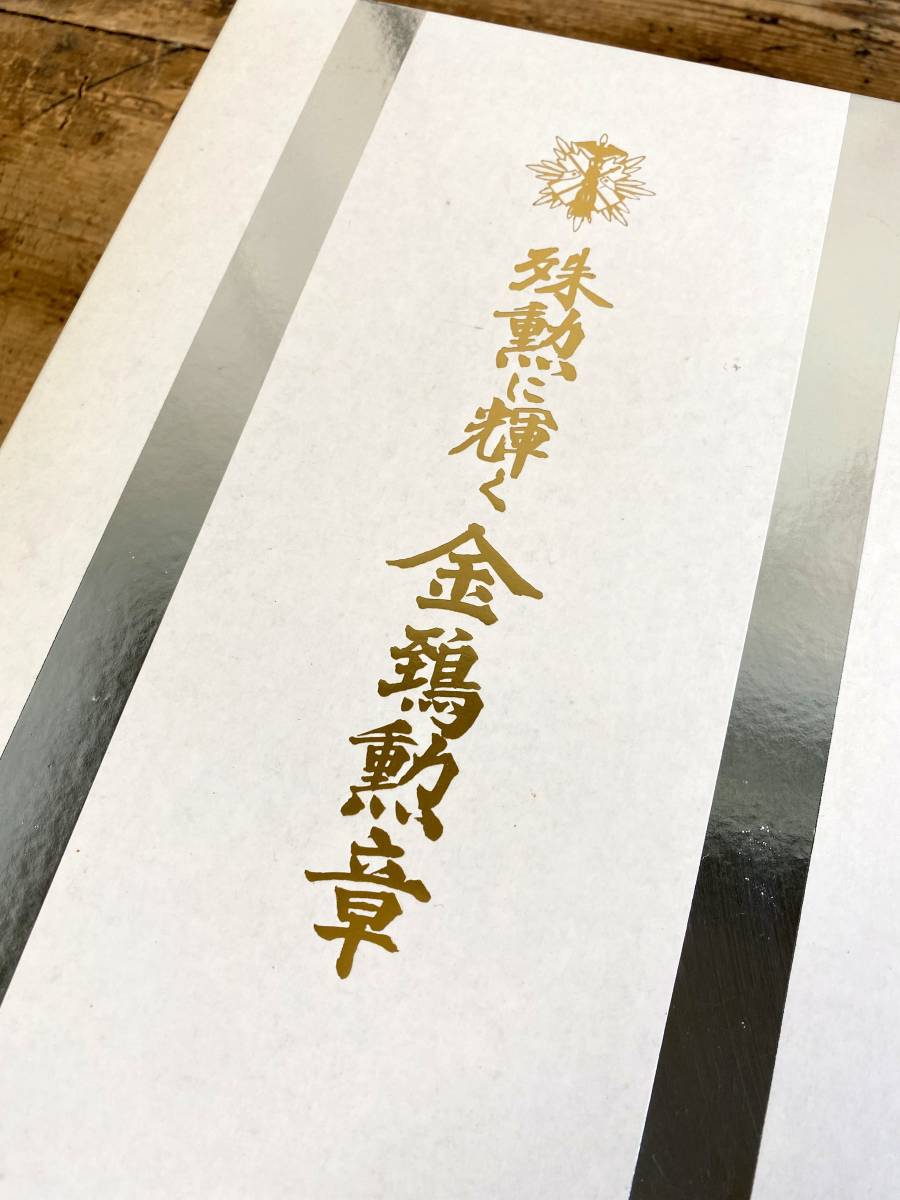 殊勲に輝く金鵄勲章